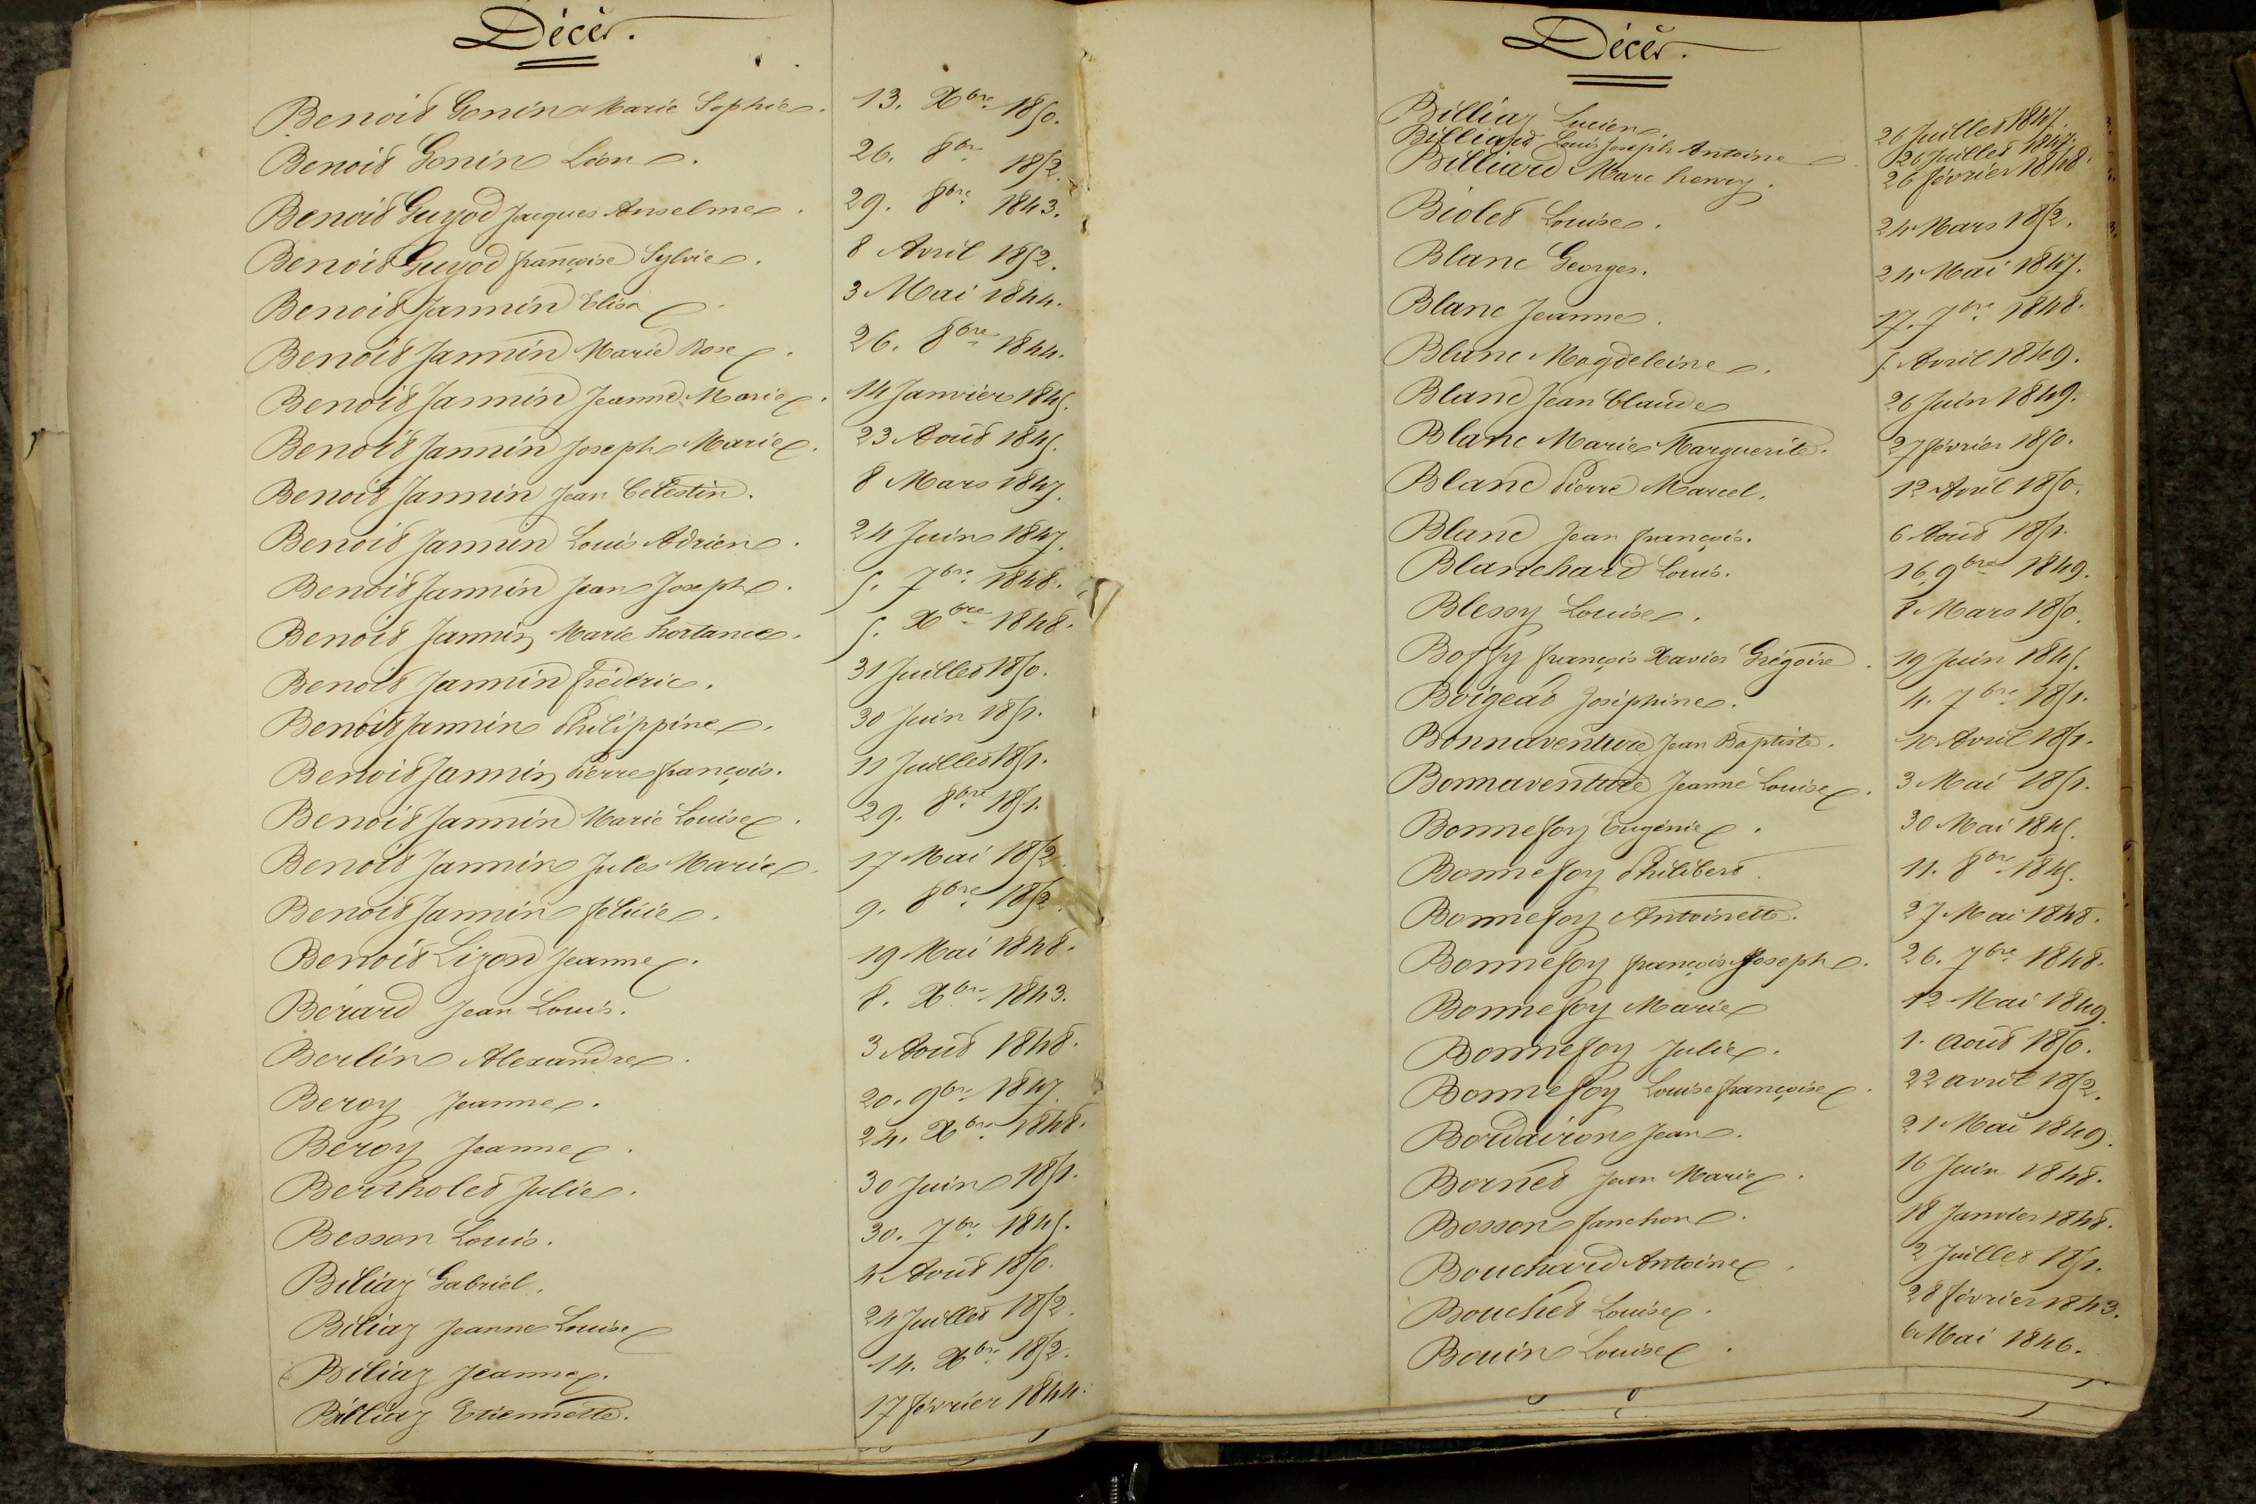 Décès.
Benoit Gonin Marie Sophie. 13. Xbre 1850.
Benoit Gonin Léon. 26. 8bre 1852.
Benoit Guyod Jacques Anselme. 29. 8bre 1843.
Benoit Guyod françoise Sylvie. 8 Avril 1852.
Benoit Jannin Elisa. 3 Mai 1844.
Benoit Jannin Marie Rose. 26. 8bre 1844.
Benoit Jannin Jeanne Marie. 14 Janvier 1845.
Benoit Jannin Joseph Marie. 23 Août 1845.
Benoit Jannin Jean Célestin. 8 Mars 1847.
Benoit Jannin Louis Adrien. 24 Juin 1847.
Benoit Jannin Jean Joseph. 5. 7bre 1848.
Benoit Jannin Marie hortance. 5. Xbre 1848.
Benoit Jannin frédéric. 31 Juillet 1850.
Benoit Jannin Philippine. 30 Juin 1851.
Benoit Jannin Pierre françois. 11 Juillet 1851.
Benoit Jannin Marie Louise. 29. 8bre 1851.
Benoit Jannin Jules Marie. 17 Mai 1852.
Benoit Jannin félicie. 9. 8bre 1852.
Benoit Lizon Jeanne. 19 Mai 1848.
Bérard Jean Louis. 8. Xbre 1843.
Berlin Alexandre. 3 Août 1848.
Beroy Jeanne. 20. 9bre 1847.
Beroy Jeanne. 24. Xbre 1848.
Bertholet Julie. 30 Juin 1851.
Besson Louis. 30. 7bre 1845.
Biliaz Gabriel. 4 Août 1850.
Biliaz Jeanne Louise 24 Juillet 1852.
Biliaz Jeanne. 14. Xbre 1852.
Billiaz Etiennette. 17 février 1844.
Décès.
Billiaz Lucien. 26 Juillet 1847.
Billiard Louis Joseph Antoine 26 Juillet 1847.
Billiard Marc henry. 26 février 1848.
Biolet Louise. 24 Mars 1852.
Blanc Georges. 24 Mai 1847.
Blanc Jeanne. 17. 7bre 1848.
Blanc Magdeleine. 5. Avril 1849.
Blanc Jean Claude 26 Juin 1849.
Blanc Marie Marguerite. 27 février 1850.
Blanc Pierre Marcel. 12 Avril 1850.
Blanc Jean françois. 6 Août 1851.
Blanchard Louis. 16. 9bre 1849.
Blessy Louise. 8 Mars 1850.
Boffy françois Xavier Grégoire. 19 Juin 1845.
Boigeat Joséphine. 4. 7bre 1851.
Bonnaventure Jean Baptiste. 10 Avril 1851.
Bonnaventure Jeanne Louise. 3 Mai 1851.
Bonnefoy Eugénie. 30 Mai 1845.
Bonnefoy Philibert. 11. 8bre 1845.
Bonnefoy Antoinette. 27 Mai 1848.
Bonnefoy françois Joseph. 26. 7bre 1848.
Bonnefoy Marie 12 Mai 1849.
Bonnefoy Julie. 1. août 1850.
Bonnefoy Louise françoise. 22 avril 1852.
Bordairon Jean. 21 Mai 1849.
Bornet Jean Marie. 16 Juin 1848.
Bosson fanchon. 18 Janvier 1848.
Bouchard Antoine. 2 Juillet 1851.
Bouchet Louise. 28 février 1843.
Bouin Louise. 6 Mai 1846.